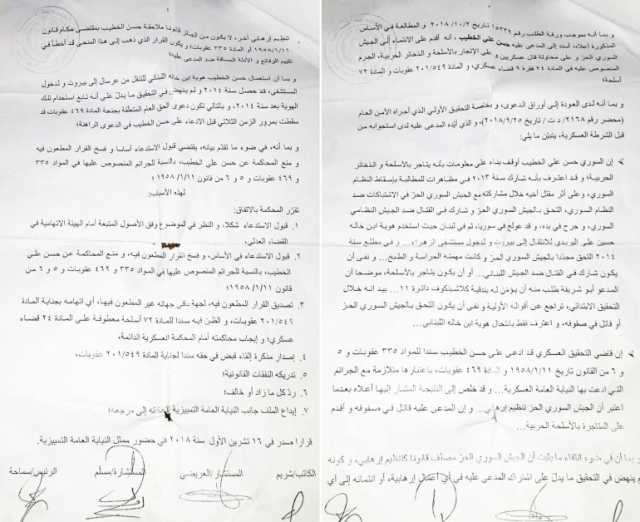 و بما أنه بموجب ورقة الطلب رقم تاريخ ٢٠١٨/١٠/٢ و المطالعة في الأساس
المذكورة أعلاه، أسند إلى المدعى عليه حسن علي الخطيب، أنه أقدم على الانتماء إلى الجيش
السوري الحر و على محاولة قتل عسكريين و على الإتجار بالأسلحة و الذخائر الحربية، الجرم
المنصوص عليه في المادة ٢٤ فقرة قضاء عسكري، و المادة ٢٠١/٥٤٩ عقوبات و المادة ٧٢
أسلحة؛
و بما أنه لدى العودة إلى أوراق الدعوى، و بخاصة التحقيق الأولي الذي أجراه الأمن العام
(محضر رقم ٢١٦٨/د ت/ تاريخ ٢٠١٨/٩/٢٥)، و الذي أيّده المدعى عليه لدى استجوابه من
قبل الشرطة العسكرية، يتبيّن ما يلي:
إن السوري حسن علي الخطيب أوقف بناء على معلومات بأنه يتاجر بالأسلحة و الذخائر
الحربية؛ و قد اعترف بأنه شارك سنة ٢٠١٣ في مظاهرات للمطالبة بإسقاط النظام
السوري، و على أثر مقتل أخيه خلال مشاركته مع الجيش السوري الحرّ في الاشتباكات ضد
النظام السوري، التحق بالجيش السوري الحرّ و شارك في القتال ضد الجيش النظامي
السوري، و جرح في يده، و قد عولج في سوريا، ثم في لبنان حيث استخدم هوية ابن خاله
حسين علي البريدي للانتقال إلى بيروت و لدخول مستشفى الزهراء... و في مطلع سنة
٢٠١٤ التحق مجددا بالجيش السوري الحرّ و كانت مهمته الحراسة و الطبخ... و نفى أن
يكون شارك في القتال ضد الجيش اللبناني... أو أن يكون يتاجر بالأسلحة، موضحا أن
المدعو أبو شريفة طلب منه أن يؤمّن له بندقية كلاشنكوف دائرة ١١... بيد أنه خلال
التحقيق الابتدائي، تراجع عن أقواله الأولية و نفى أن يكون التحق بالجيش السوري الحرّ
أو قاتل في صفوفه، و اعترف فقط بانتحال هوية ابن خاله اللبناني.
إن قاضي التحقيق العسكري قد ادعى على حسن الخطيب سندا للمواد ٣٣٥ عقوبات و ٥
و ٦ من القانون تاريخ ١٩٥٨/١/١١ و المادة ٤٦٩ عقوبات، باعتبارها متلازمة مع الجرائم
التي ادعت بها النيابة العامة العسكرية... و قد خلص إلى النتيجة المشار إليها أعلاه بعدما
اعتبر أن الجيش السوري الحرّ تنظيم إرهابي... و إن المدعى عليه قاتل في صفوفه و أقدم
على المتاجرة بالأسلحة الحربية...
و بما أن في ضوء انتفاء ما يثبت أن الجيش السوري الحرّ مصنّف قانونا كتنظيم إرهابي، و كونه
لم ينهض في التحقيق ما يدلّ على اشتراك المدعى عليه في أي إرهابية، أو انتمائه إلى أي
تنظيم إرهابي آخر، لا يكون من الجائز قانونا ملاحقة حسن الخطيب بمقتضى أحكام قانون
١٩٥٨/١/١١ أو المادة ٣٣٥ عقوبات؛ و يكون القرار الذي ذهب إلى هذا المنحى قد أخطأ في
تقييم الوقائع و الأدلة المساقة ضد المدعى عليه؛
و بما أن استعمال حسن الخطيب هوية ابن خاله اللبناني للتنقل من عرسال إلى بيروت و لدخول
المستشفى، قد حصل سنة ٢٠١٤ و لم ينهض في التحقيق ما يدلّ على أنه تابع استخدام تلك
الهوية بعد سنة ٢٠١٤، و بالتالي تكون دعوى الحق العام المتعلقة بجنحة المادة ٤٦٩ عقوبات قد
سقطت بمرور الزمن الثلاثي قبل الادعاء على حسن الخطيب في الدعوى الراهنة؛
و بما أنه، في ضوء ما تقدّم بيانه، يقتضي قبول الاستدعاء أساسا و فسخ القرار المطعون فيه
و منع المحاكمة عن حسن علي الخطيب، بالنسبة للجرائم المنصوص عليها في المواد ٣٣٥
و ٤٦٩ عقوبات و ٥ و ٦ من قانون ١٩٥٨/١/١١
لهذه الأسباب
تقرّر المحكمة بالاتفاق:
١. قبول الاستدعاء شكلا، و النظر في الموضوع وفق الأصول المتبعة أمام الهيئة الاتهامية في
القضاء العدلي.
٢. قبول الاستدعاء في الأساس، و فسخ القرار المطعون فيه، و منع المحاكمة عن حسن علي
الخطيب، بالنسبة للجرائم المنصوص عليها في المواد ٣٣٥ و ٤٦٩ عقوبات و ٥ و ٦ من
قانون ١٩٥٨/١/١١
٣. تصديق القرار المطعون فيه، لجهة باقي جهاته غير المطعون فيها، أي اتهامه بجناية المادة
٢٠١/٥٤٩ عقوبات، و الظنّ فيه سندا للمادة ٧٢ أسلحة معطوفة على المادة ٢٤ قضاء
عسكري؛ و إيجاب محاكمته أمام المحكمة العسكرية الدائمة.
٤. إصدار مذكرة إلقاء قبض في حقه سندا لجناية المادة ٢٠١/٥٤٩ عقوبات.
٥. تدريكه النفقات القانونية؛
٦. ردّ كل ما زاد أو خالف؛
٧. إيداع الملف جانب النيابة العامة التمييزية لإحالته إلى مرجعه؛
قرارا صدر في ١٦ تشرين الأول سنة ٢٠١٨ في حضور ممثل النيابة العامة التمييزية.
الكاتب/شريم المستشار/العريضي المستشارة/مسلم الرئيس/سماحة